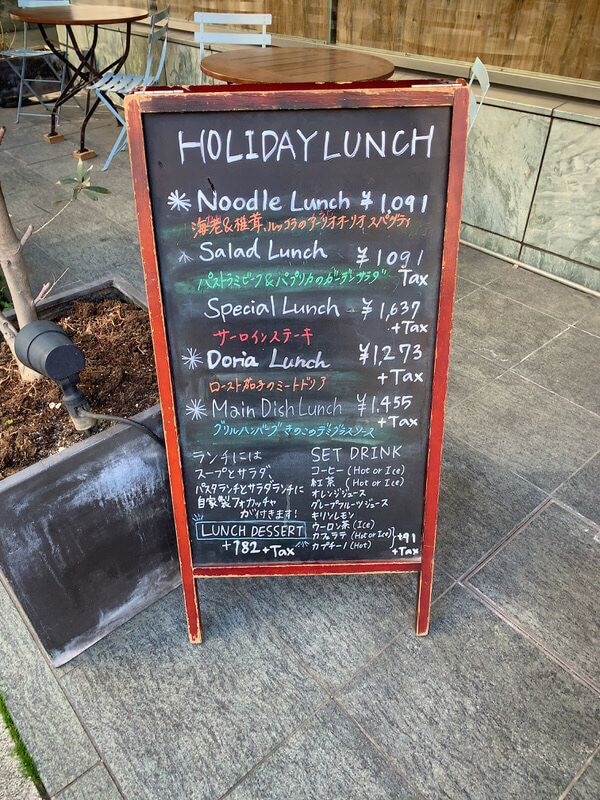 HOLIDAY LUNCH
Noodle Lunch ¥1,091
海老&椎茸、ルッコラのアーリオオーリオ、スパゲティ
Salad Lunch ¥1091
パストラミビーフ&パプリカのガーデンサラダ Tax
Special Lunch ¥1,637
+Tax
サーロインステーキ
Doria Lunch ¥1,273
+Tax
ロースト茄子のミートドリア
Main Dish Lunch ¥1.455
+Tax
グリルハンバーグ きのこのデミグラスソース
ランチには
スープとサラダ、
パスタランチとサラダランチに
自家製フォカッチャ
が付きます!
LUNCH DESSERT
+782+Tax
SET DRINK
コーヒー (Hot or Ice)
紅茶 (Hot or Ice)
オレンジジュース
グレープフルーツジュース
キリンレモン
ウーロン茶 (Ice)
カフェラテ (Hot or Ice) +91
カプチーノ (Hot) +Tax